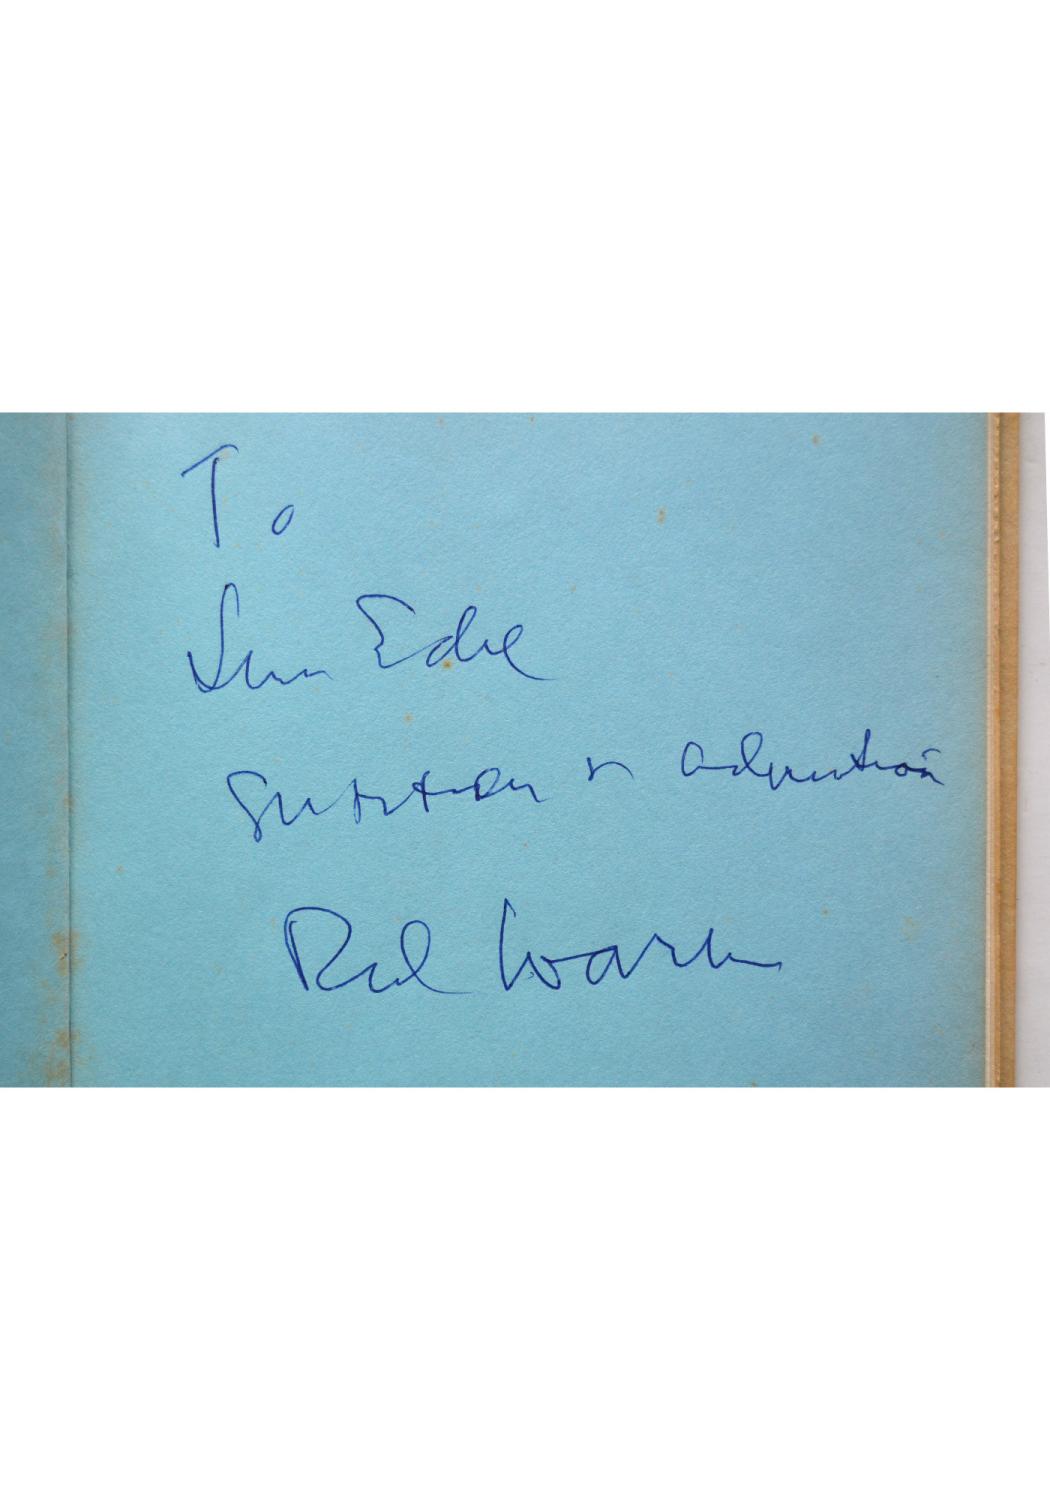 To
Leon Edel
Gratitude & admiration
Red Warren